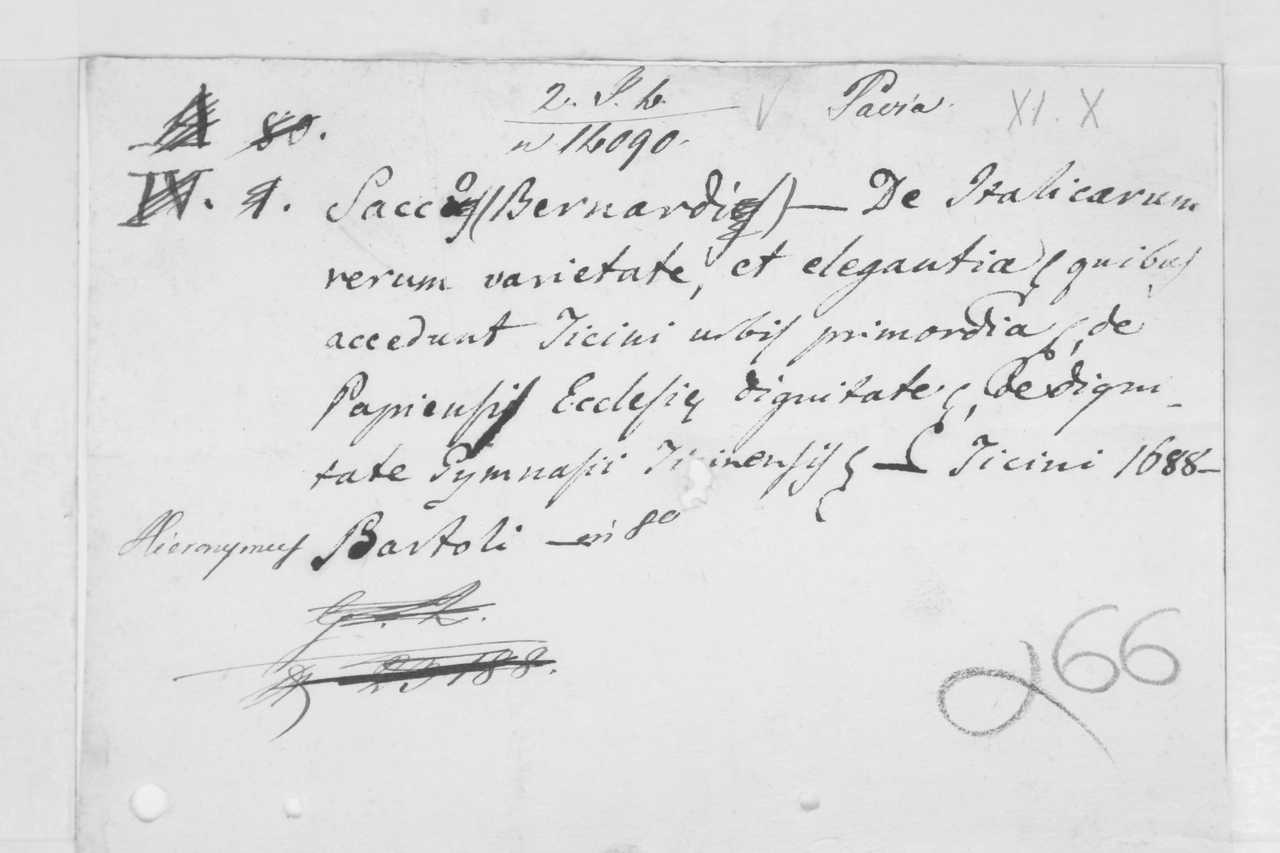 2. S. h. Pavia. XI. X
80.
n 14090.
IV. 1. Sacco (Bernardi) — De Italicarum
rerum varietate, et elegantia, quibus
accedunt Ticini urbis primordia, de
Papiensis Ecclesię dignitate, De digni-
tate Gymnasii Ticinensis — Ticini 1688 —
Hieronymus Bartoli — in 8o
23188.
266